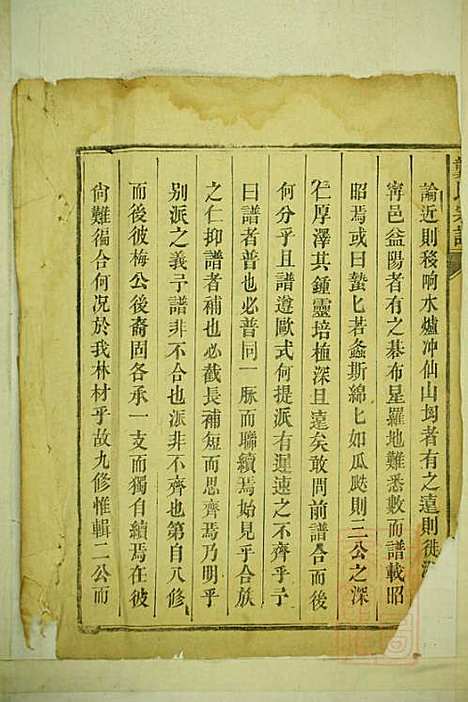 諭近則移响水爐冲仙山坳者有之遠則徙
寗邑益陽者有之碁布星羅地難悉數而譜載昭
昭焉或曰蟄匕若螽斯綿匕如瓜瓞則三公之深
仁厚澤其鍾靈培植深且遠矣敢問前譜合而後
何分乎且譜遵歐式何提派有遲速之不齊乎予
曰譜者普也必普同一脉而聯續焉始見乎合族
之仁抑譜者補也必截長補短而思齊焉乃明乎
别派之義予譜非不合也派非不齊也第自八修
而後彼梅公後裔固各承一支而獨自續焉在彼
尙難徧合何况於我林材乎故九修惟輯二公而